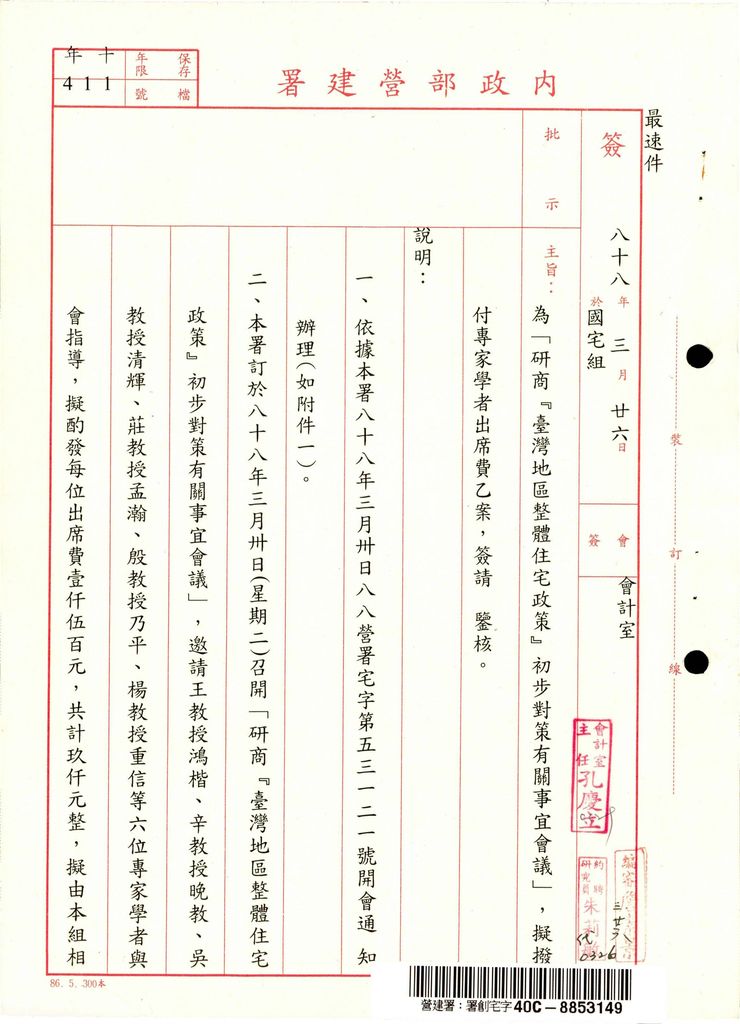 內政部營建署
保存年限
十年
檔號
411
最速件
簽
八十八年三月廿六日
於國宅組
會簽
會計室
批示
主旨：為「研商『臺灣地區整體住宅政策』初步對策有關事宜會議」，擬撥
付專家學者出席費乙案，簽請　鑒核。
說明：
一、依據本署八十八年三月卅日八八營署宅字第五三一二一號開會通知
辦理（如附件一）。
二、本署訂於八十八年三月卅日（星期二）召開「研商『臺灣地區整體住宅
政策』初步對策有關事宜會議」，邀請王教授鴻楷、辛教授晚教、吳
教授清輝、莊教授孟瀚、殷教授乃平、楊教授重信等六位專家學者與
會指導，擬酌發每位出席費壹仟伍百元，共計玖仟元整，擬由本組相
裝訂線
會計室主任孔慶立
約聘研究員朱莉
代
0326
86. 5. 300本
營建署：署創宅字40C－8853149